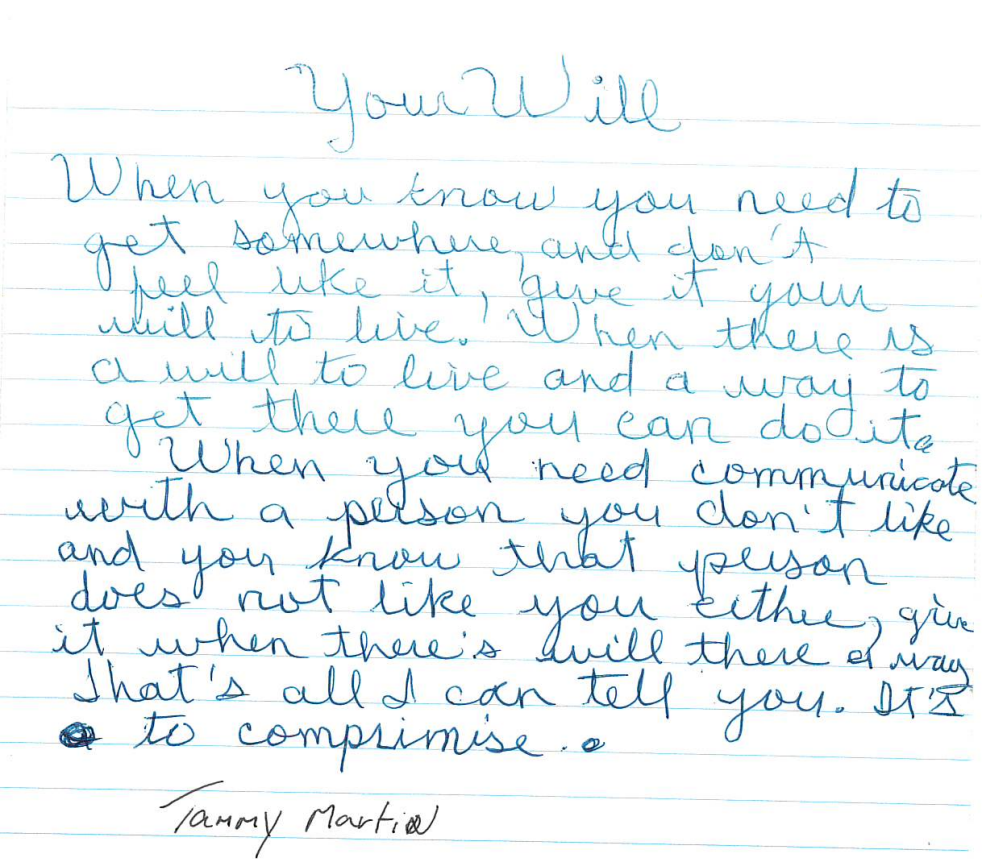 Your Will
When you know you need to
get somewhere, and don't
feel like it, give it your
will to live. When there is
a will to live and a way to
get there you can do it.
When you need communicate
with a person you don't like
and you know that person
does not like you either, give
it when there's will there a way
That's all I can tell you. It's
to comprimise.
Tammy Martin